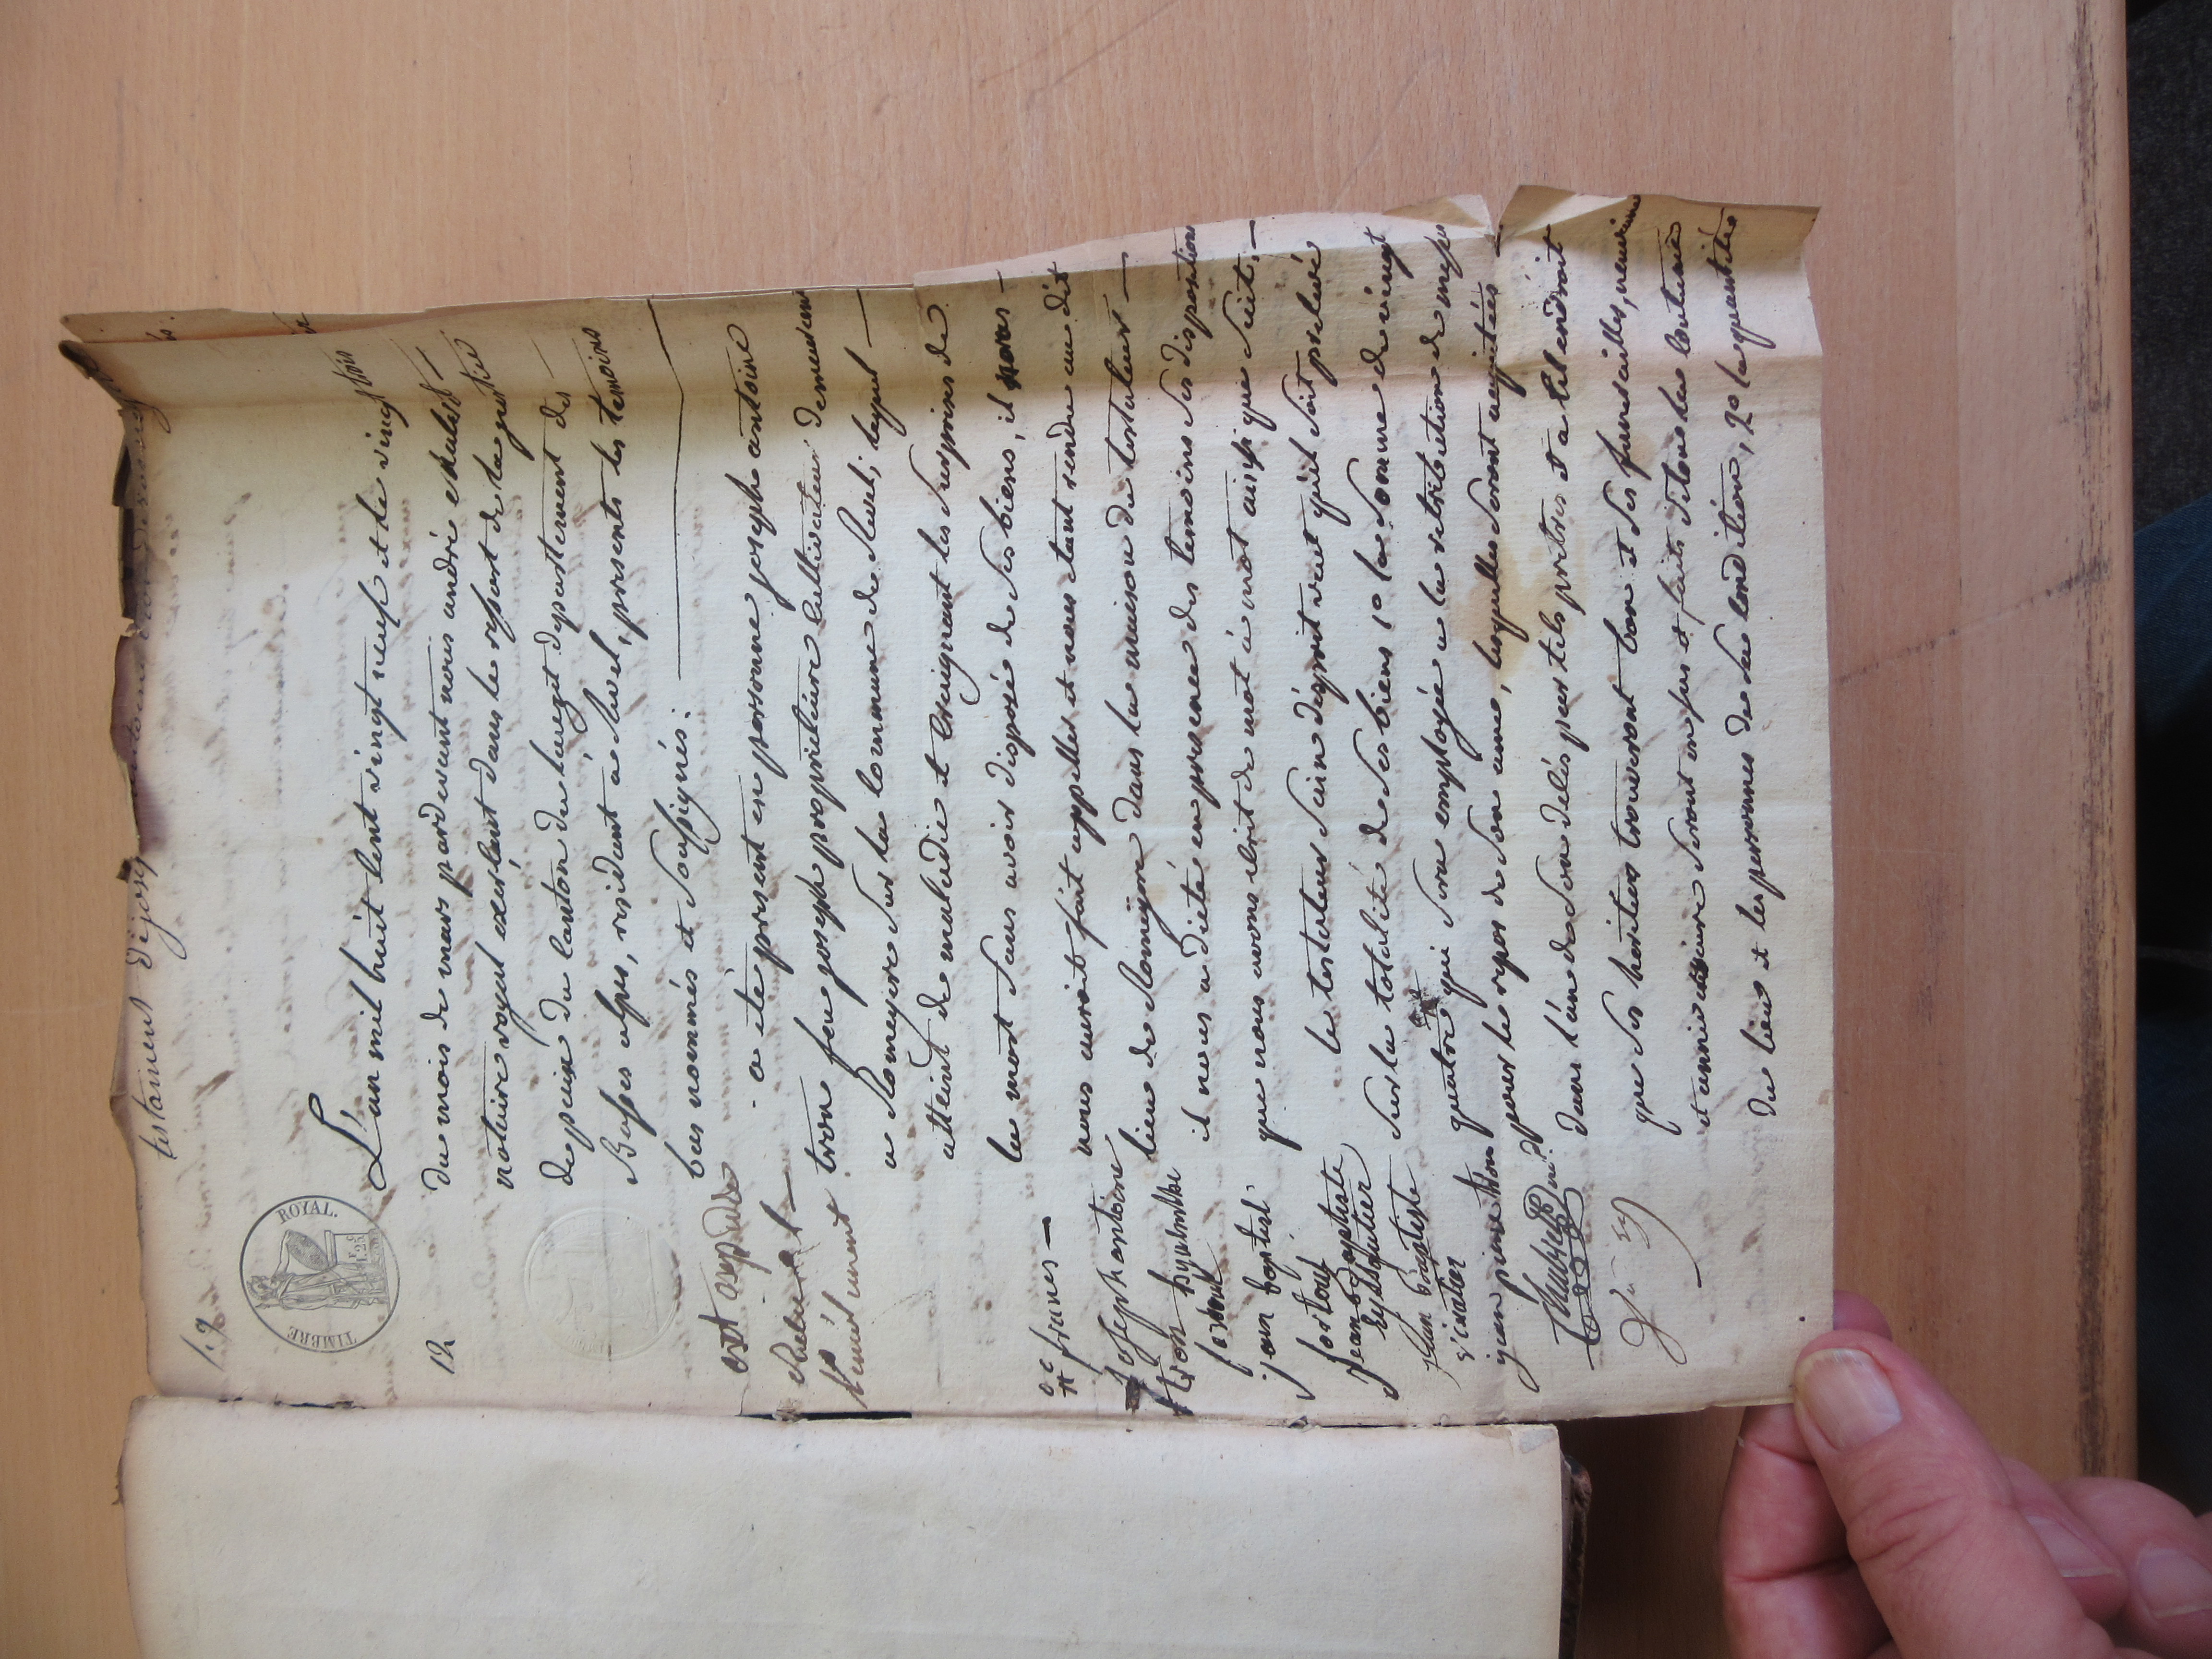 testament de josep
19
TIMBRE ROYAL.
12
L'an mil huit cent vingt neuf et le vingt trois
du mois de mars pardevant nous andré chabert
notaire royal exerçant dans le ressort de la justice
de paix du canton du lauzet departement des
Basses alpes, residant a Revel, presents les temoins
bas nommés et soussignés:
a eté present en personne joseph antoine
tron feu joseph proprietaire cultivateur demeurant
a Lameyere sur la commune de Revel; lequel
atteint de maladie et craignant les surprises de
la mort sans avoir disposé de ses biens, il
nous auroit fait appeller et nous etant rendu au dit
lieu de Lameÿere dans la maison du testateur
il nous a dicté en presence des temoins ses dispositions
que nous avons ecrit de mot à mot ainsi que suit.
le testateur sain d'esprit veut qu'il soit prelevé
sur la totalité de ses biens 1º la somme de vingt
quatre qui sera employée a la retribution de messes
pour le repos de son ame, lesquelles seront acquitées
dans l'an de son delès par tels pretres et a tel endroit
que ses heritiers trouveront bon et ses funerailles, neuvaine
et anniversaire seront en sus et faits selon la coutume
du lieu et les personnes de sa condition, 2º la quantité
ext expedié
Chabert
francs
Joseph antoine
tron
jean baptist
jean baptiste
jean baptiste
jean pierre tron
Chabert